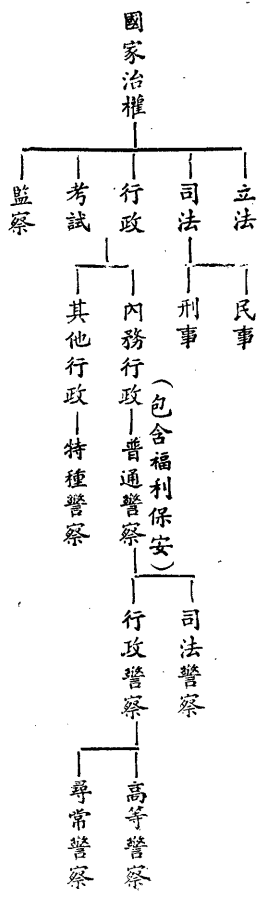 國家治權
立法
司法
行政
考試
監察
民事
刑事
內務行政
其他行政
(包含福利保安)
普通警察
特種警察
司法警察
行政警察
高等警察
尋常警察